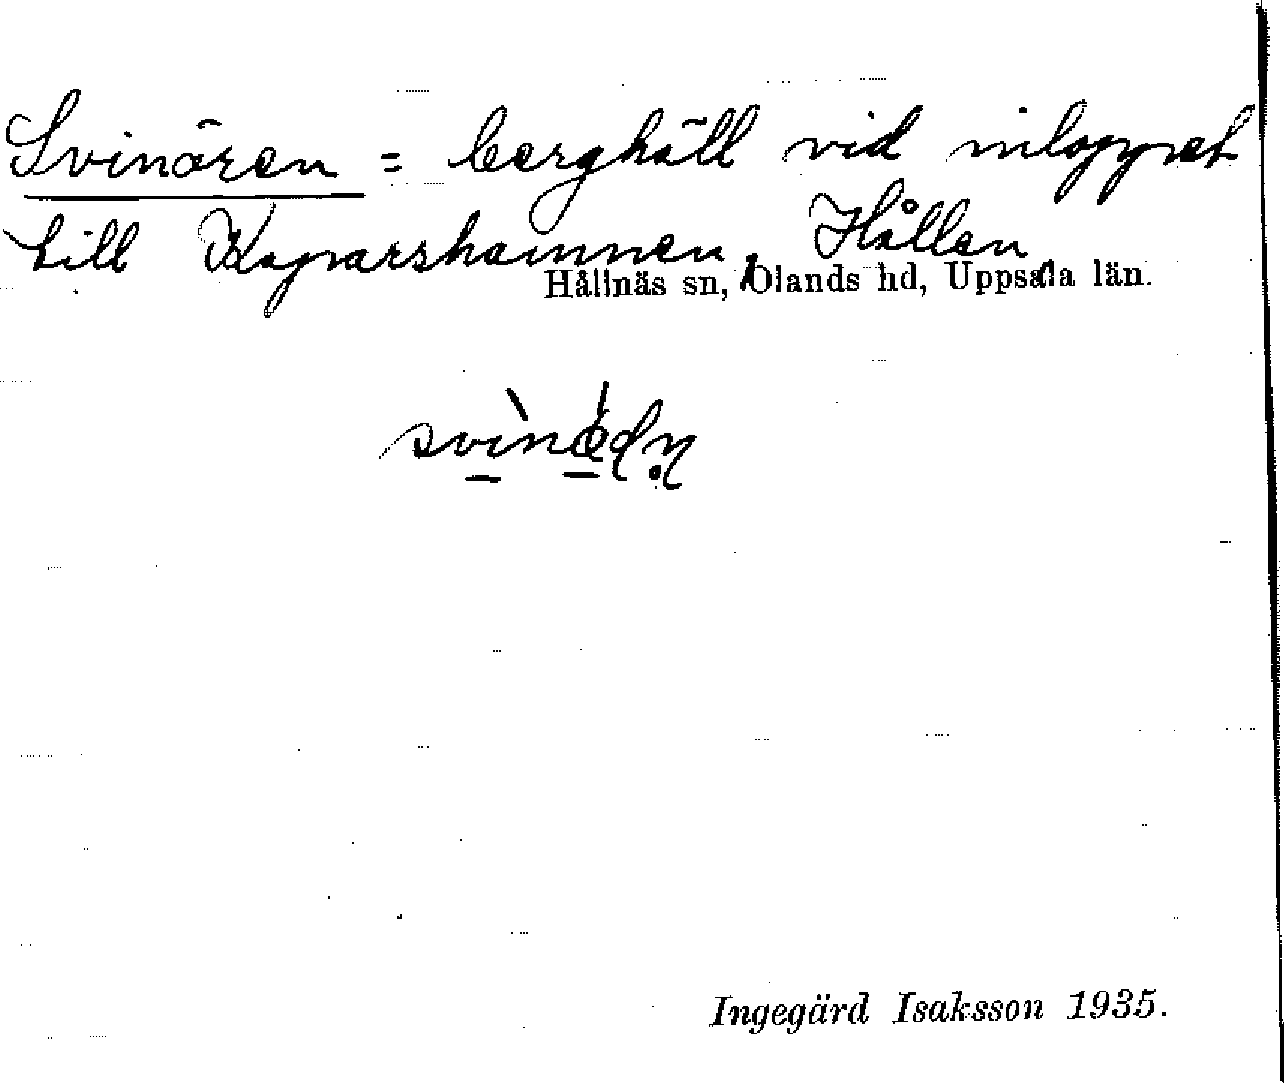 Svinören = berghäll vid inloppet
till Kaparshamnen, Hållen
Hållnäs sn, Olands hd, Uppsala län.
Ingegärd Isaksson 1935.